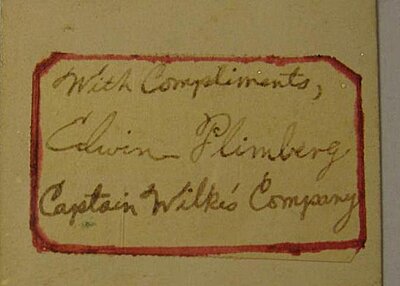 With Compliments,
Edwin Plimberg
Captain Wilkis Company